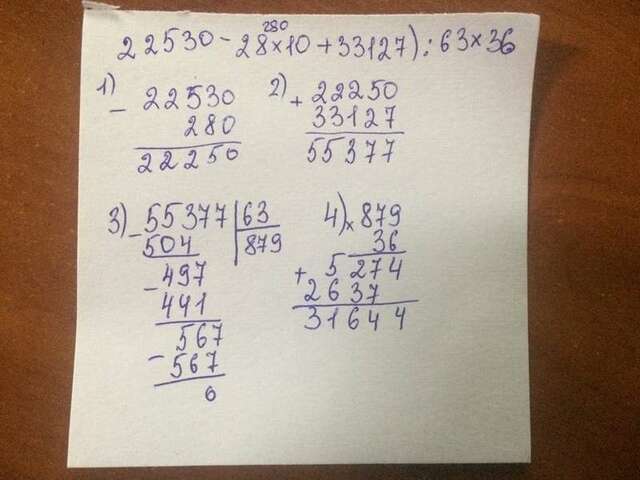 280
22530 - 28 × 10 + 33127) : 63 × 36
1) - 22530
280
22250
2) + 22250
33127
55377
3) - 55377 | 63
504 | 879
- 497
441
567
- 567
0
4) × 879
36
+ 5274
2637
31644